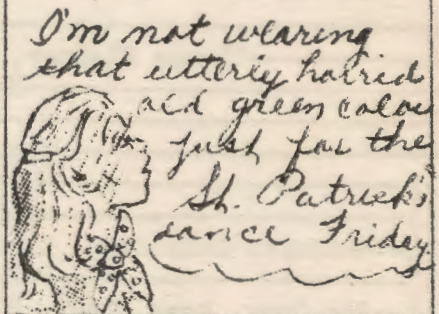 I'm not wearing
that utterly horrid
old green colour
just for the
St. Patrick's
dance Friday